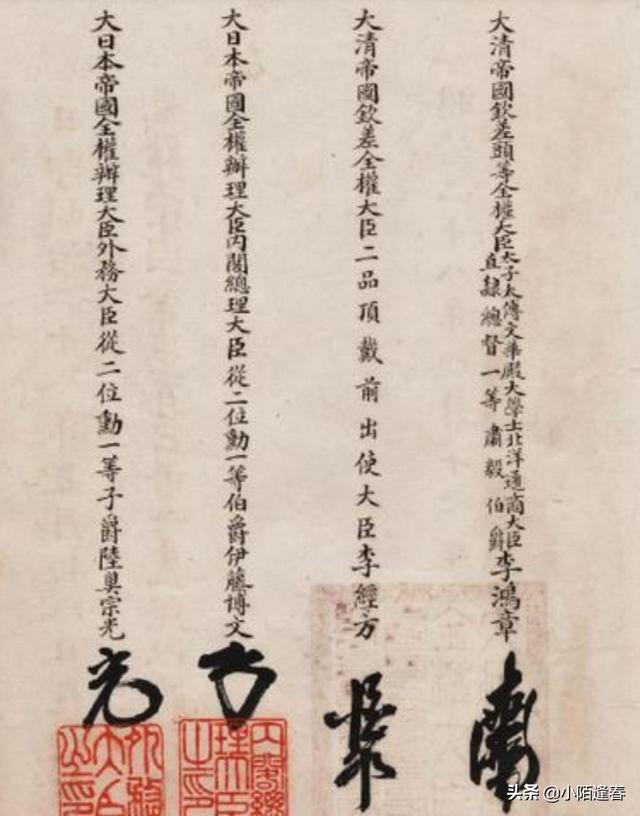 大清帝國欽差頭等全權大臣太子太傅文華殿大學士北洋通商大臣
直隸總督一等肅毅伯爵李鴻章
大清帝國欽差全權大臣二品頂戴前出使大臣李經方
大日本帝國全權辦理大臣內閣總理大臣從二位勳一等伯爵伊藤博文
大日本帝國全權辦理大臣外務大臣從二位勳一等子爵陸奧宗光
頭条 @小陌逢春